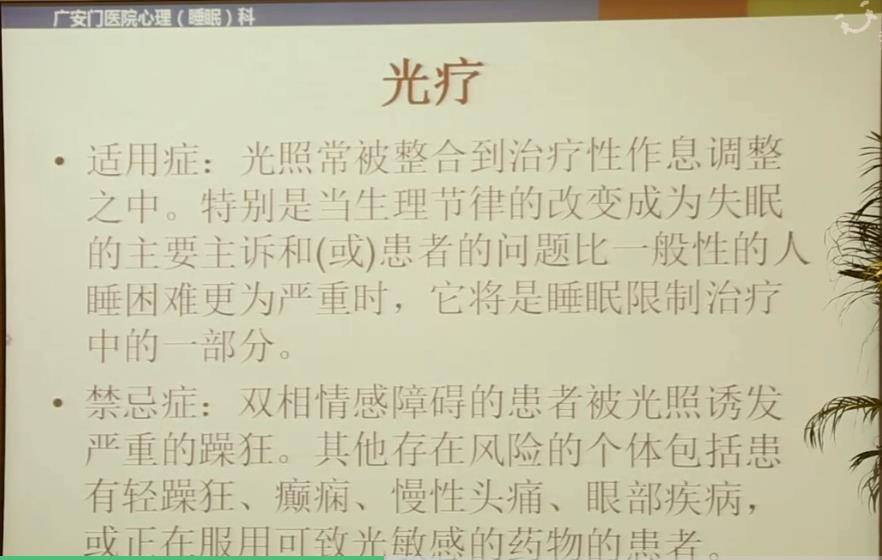 广安门医院心理（睡眠）科
光疗
• 适用症：光照常被整合到治疗性作息调整
之中。特别是当生理节律的改变成为失眠
的主要主诉和(或)患者的问题比一般性的人
睡困难更为严重时，它将是睡眠限制治疗
中的一部分。
• 禁忌症：双相情感障碍的患者被光照诱发
严重的躁狂。其他存在风险的个体包括患
有轻躁狂、癫痫、慢性头痛、眼部疾病，
或正在服用可致光敏感的药物的患者。